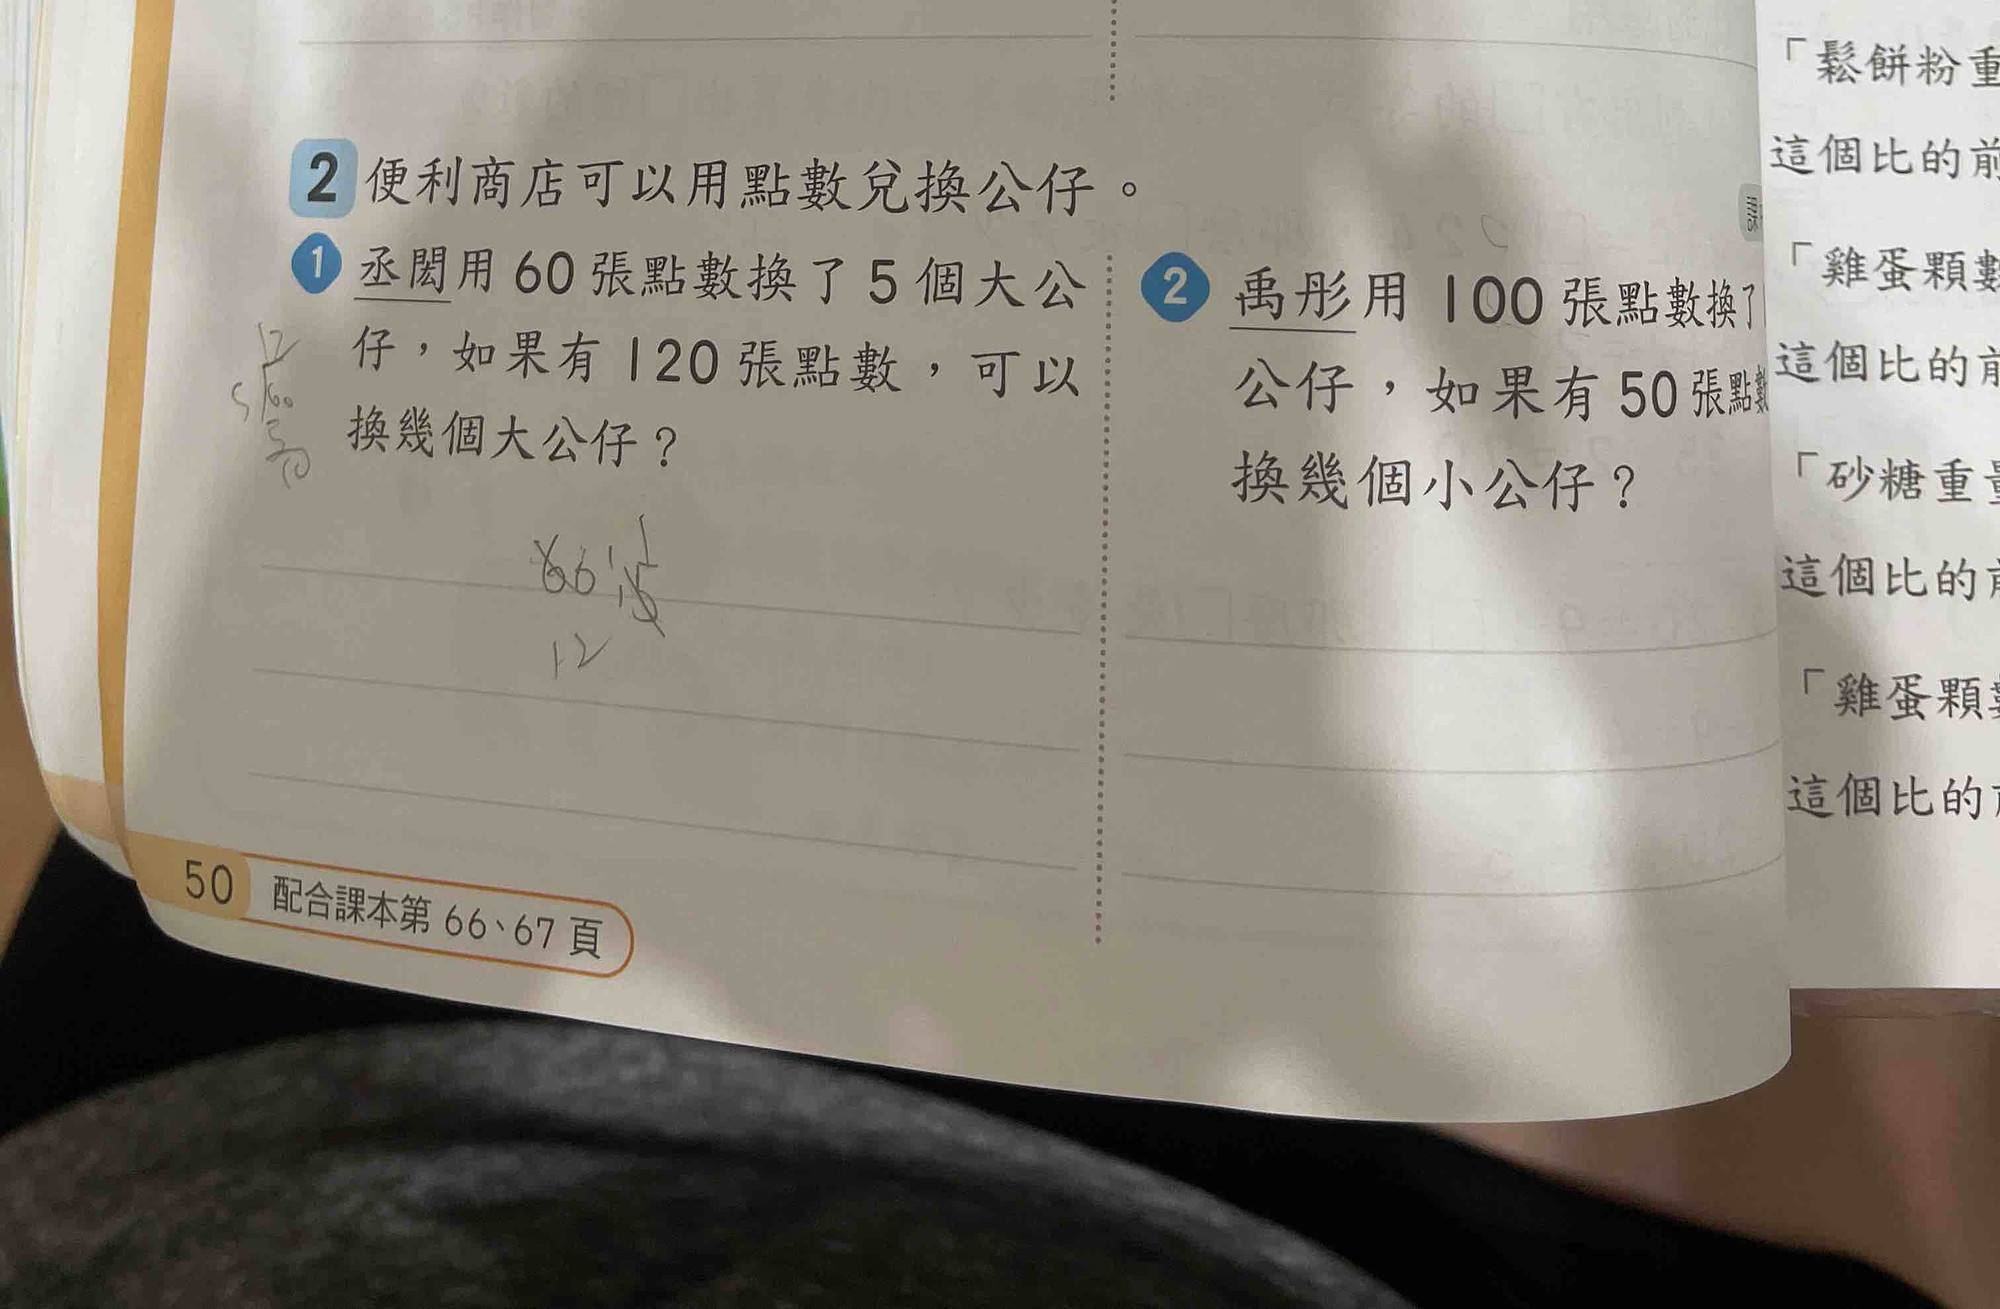 2 便利商店可以用點數兌換公仔。
1 丞閎用 60 張點數換了 5 個大公
仔，如果有 120 張點數，可以
換幾個大公仔？
12
5 60
12
2 禹彤用 100 張點數換了
公仔，如果有 50 張點數
換幾個小公仔？
50 配合課本第 66、67 頁
「鬆餅粉重
這個比的前
「雞蛋顆數
這個比的前
「砂糖重量
這個比的前
「雞蛋顆數
這個比的前